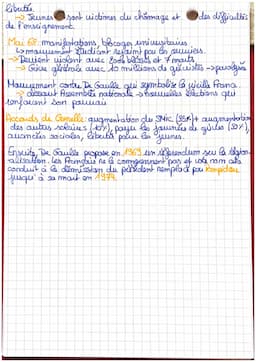 liberté.
→ Jeunes sont victimes du chômage et des difficultés
de l'enseignement.
Mai 68: manifestations, blocage universitaires
→ mouvement étudiant reprimé par les services.
→ Devient violent avec blessés et 7 morts
→ Grève générale avec 10 millions de grévistes → paralysée
Mouvement contre De Gaulle qui symbolise la vieille France.
→ dissout Assemblée nationale → nouvelles élections qui
renforcent son pouvoir
Accords de Grenelle: augmentation du SMIC (35%) + augmentation
des autres salaires (10%), payer les journées de grèves (50%),
avancées sociales, liberté pour les jeunes.
Ensuite, De Gaulle propose en 1969 un référendum sur la région-
alisation. Les Français ne le comprennent pas et vote non cela
conduit à la démission du président remplacé par Pompidou
jusqu'à sa mort en 1974.